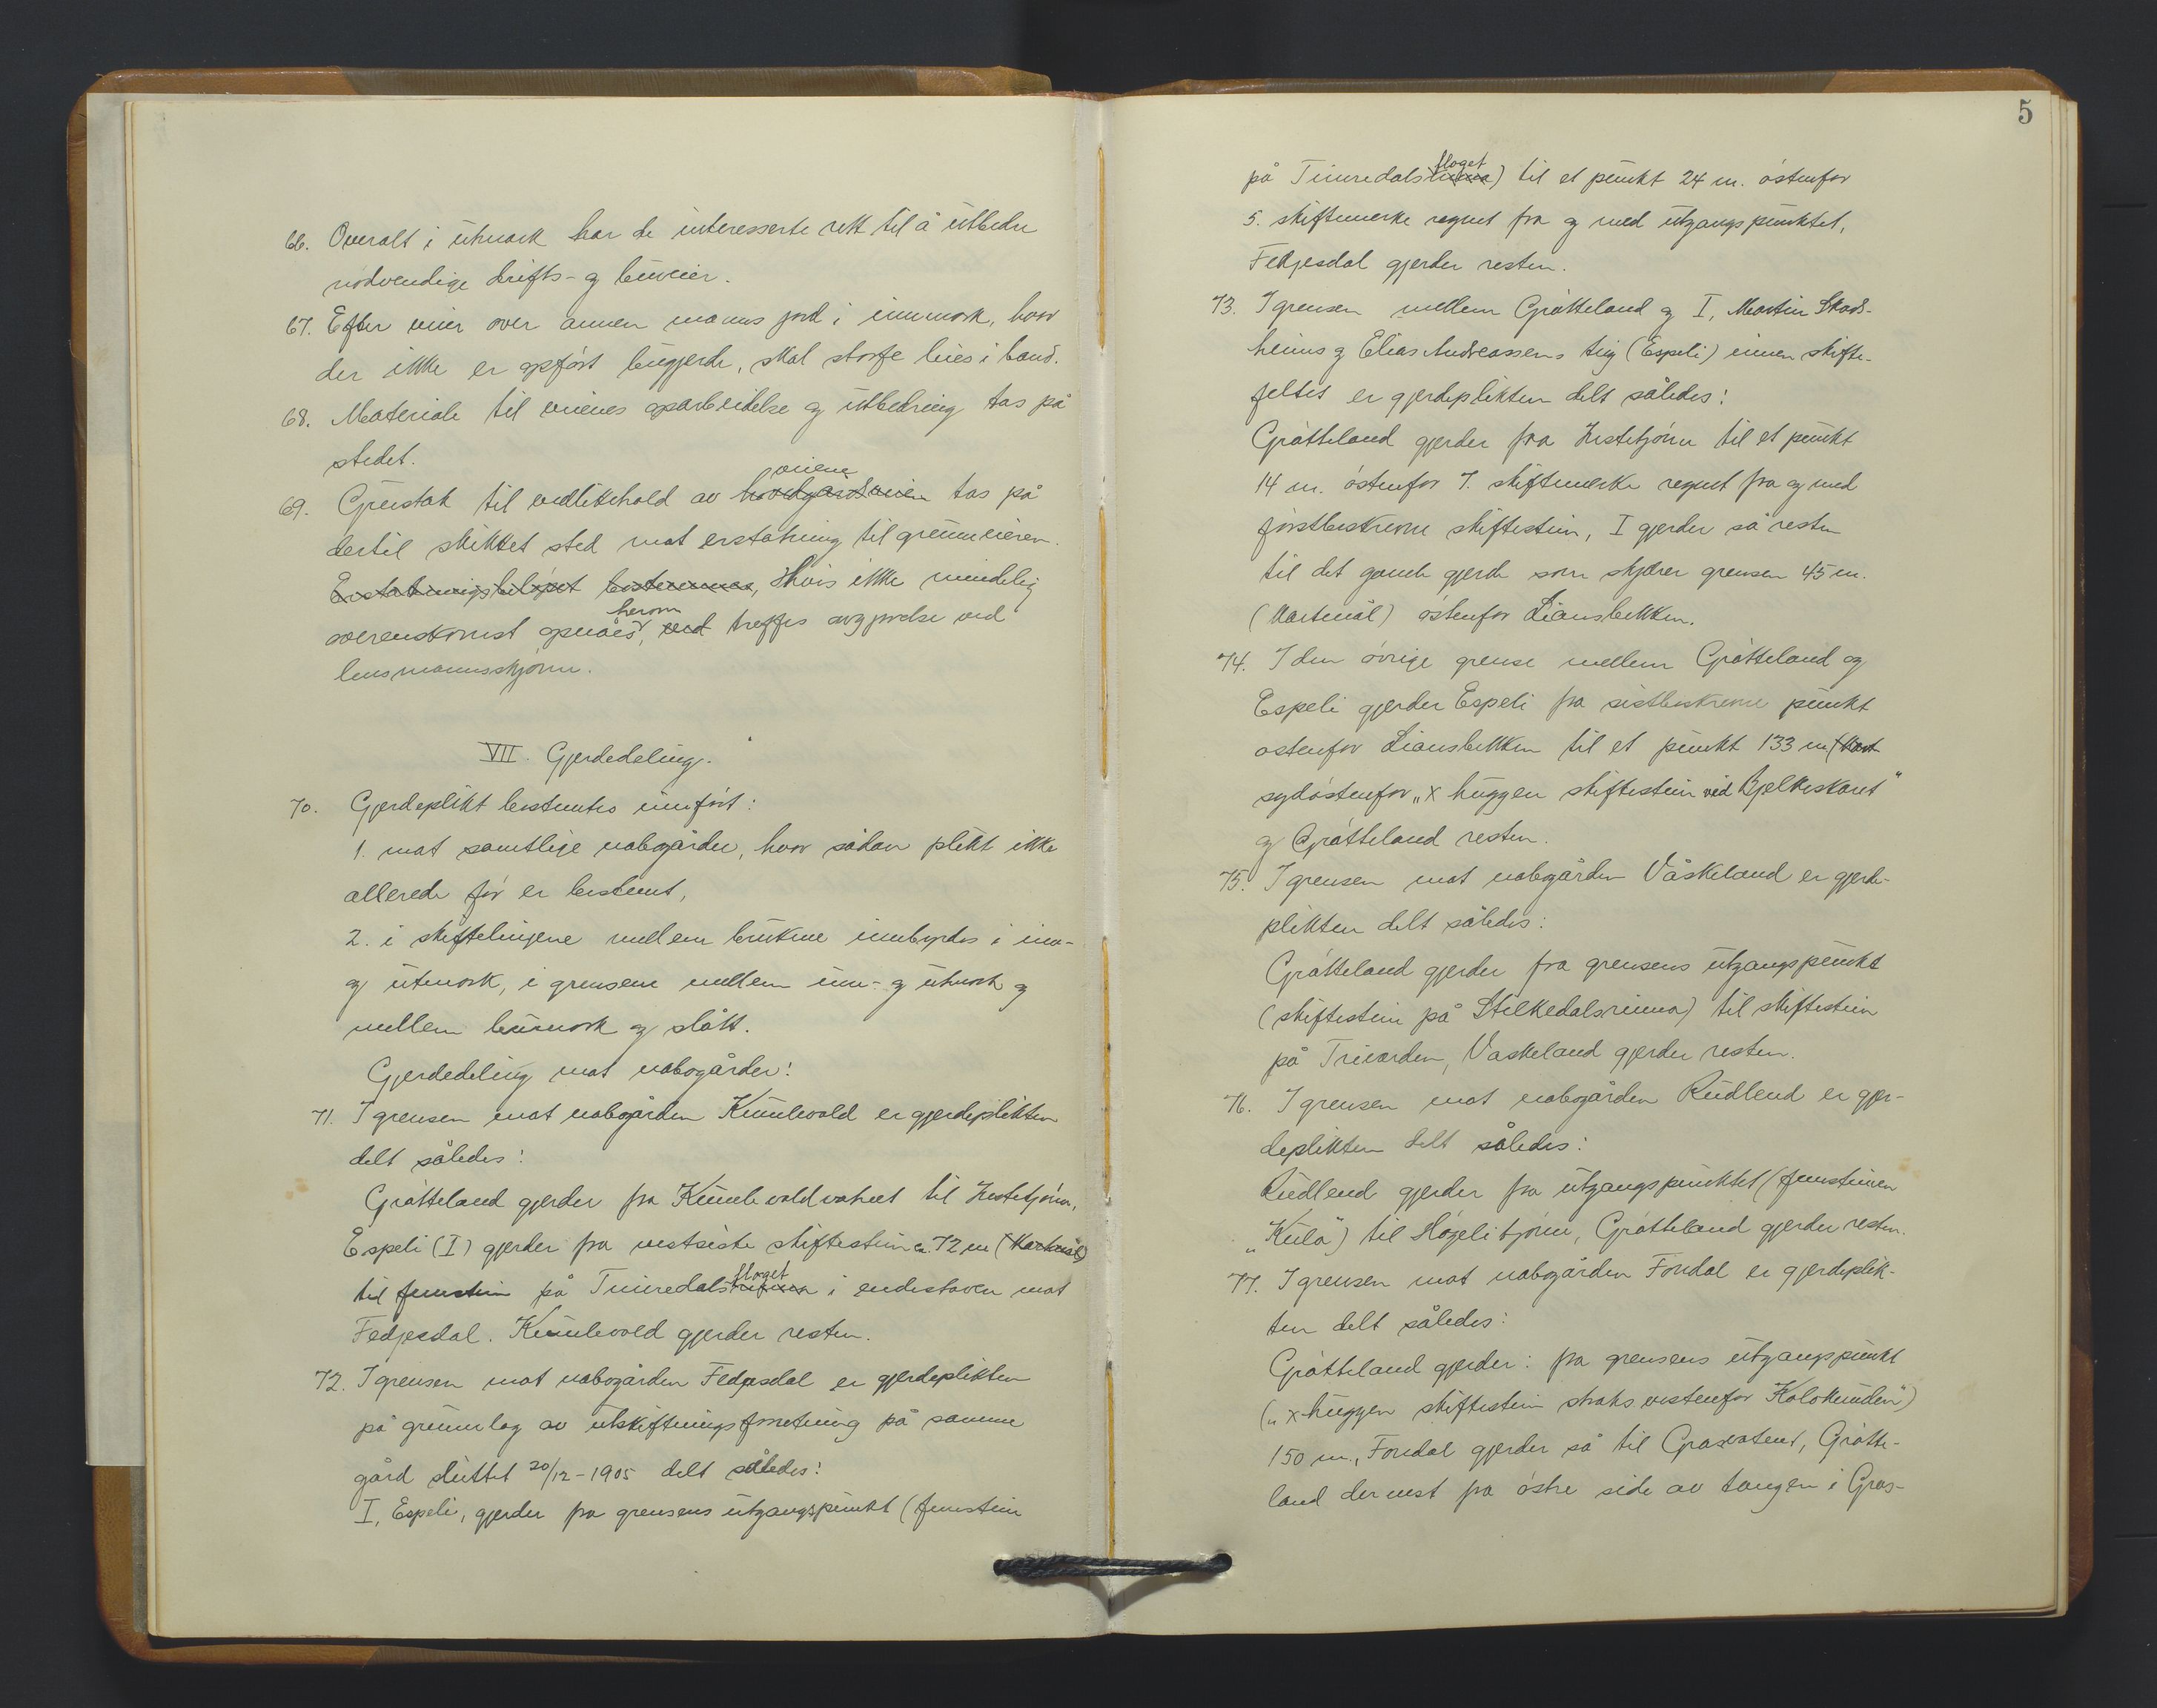 66. Overalt i utmark har de interesserte rett til å utbedre
nødvendige drifts- og buveier.
67. Efter veier over annen manns jord i innmark, hvor
der ikke er opført bugjerde, skal storfe leies i band.
68. Materiale til veienes oparbeidelse og utbedring tas på
stedet.
veiene
69. Grustak til vedlikehold av hovedgårdsveien tas på
dertil skikket sted mot erstatning til grunneieren.
Erstatningsbeløpet bestemmes, Hvis ikke mindelig
herom
overenskomst opnåes, ved treffes avgjørelse ved
lensmannsskjønn.
VII. Gjerdedeling.
70. Gjerdeplikt bestemtes innført:
1. mot samtlige nabogårder, hvor sådan plikt ikke
allerede før er bestemt,
2. i skiftelinjene mellem brukene innbyrdes i inn-
og utmark, i grensene mellem inn- og utmark og
mellem bumark og slått.
Gjerdedeling mot nabogårder:
71. I grensen mot nabogården Kumlevold er gjerdeplikten
delt således:
Gråtteland gjerder fra Kumlevoldvatnet til Hestetjønn,
Espeli (I) gjerder fra vestsiste skiftestein ca. 72 m (Kartmål)
floget
til funstein på Tuiredals i endestaven mot
Fedjesdal. Kumlevold gjerder resten.
72. I grensen mot nabogården Fedjesdal er gjerdeplikten
på grunnlag av utskiftningsforretning på samme
gård sluttet 20/12-1905 delt således:
I, Espeli, gjerder fra grensens utgangspunkt (funstein
5
floget
på Tuiredals) til et punkt 24 m. østenfor
5. skiftemerke regnet fra og med utgangspunktet,
Fedjesdal gjerder resten.
73. I grensen mellem Gråtteland og I, Martin Skads-
heims og Elias Andreassens teig (Espeli) innen skifte-
feltet er gjerdeplikten delt således:
Gråtteland gjerder fra Hestetjønn til et punkt
14 m. østenfor 7. skiftemerke regnet fra og med
førstbeskrevne skiftestein, I gjerder så resten
til det gamle gjerde som skjærer grensen 45 m.
(Kartmål) østenfor Liansbekken.
74. I den øvrige grense mellem Gråtteland og
Espeli gjerder Espeli fra sistbeskrevne punkt
østenfor Liansbekken til et punkt 133 m (Kart
sydøstenfor „x huggen skiftestein ved Bjelkeskaret"
og Gråtteland resten.
75. I grensen mot nabogården Våskeland er gjerde-
plikten delt således:
Gråtteland gjerder fra grensens utgangspunkt
(skiftestein på Stilkedalsrinna) til skiftestein
på Trivarden, Vaskeland gjerder resten.
76. I grensen mot nabogården Rudlend er gjer-
deplikten delt således:
Rudlend gjerder fra utgangspunktet (funsteinen
„Kula") til Høgelitjønn, Gråtteland gjerder resten.
77. I grensen mot nabogården Fondal er gjerdeplik-
ten delt således:
Gråtteland gjerder: fra grensens utgangspunkt
(„x-huggen skiftestein straks vestenfor Kalokunden")
150 m., Fondal gjerder så til Grasvatnet, Gråtte-
land dernest fra østre side av tangen i Gras-